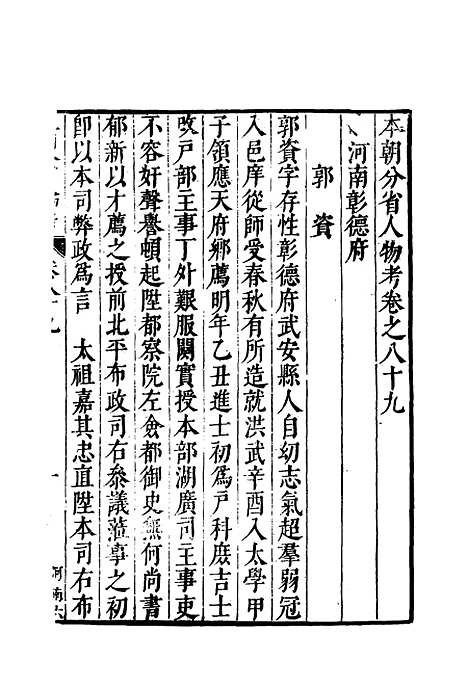 本朝分省人物考卷之八十九
河南彰德府
郭資
郭資字存性彰德府武安縣人自幼志氣超羣弱冠
入邑庠從師受春秋有所造就洪武辛酉入太學甲
子領應天府鄉薦明年乙丑進士初爲戶科庶吉士
改戶部主事丁外艱服闋實授本部湖廣司主事吏
不容奸聲譽頓起陞都察院左僉都御史無何尚書
郁新以才薦之授前北平布政司右參議蒞事之初
卽以本司弊政爲言　太祖嘉其忠直陞本司右布
卷八十九
一
河南六